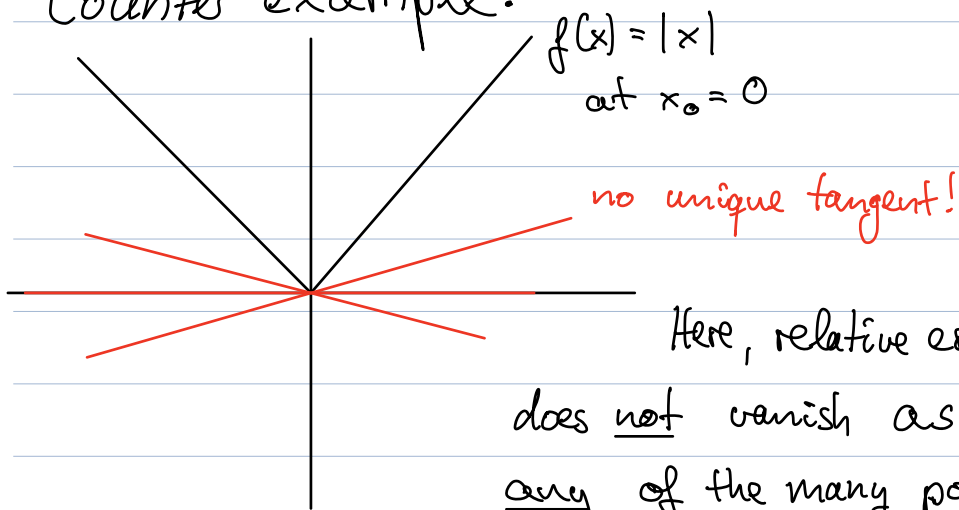 Counter example:
f(x) = |x|
at x₀ = 0
no unique tangent!
Here, relative
does not vanish as
any of the many